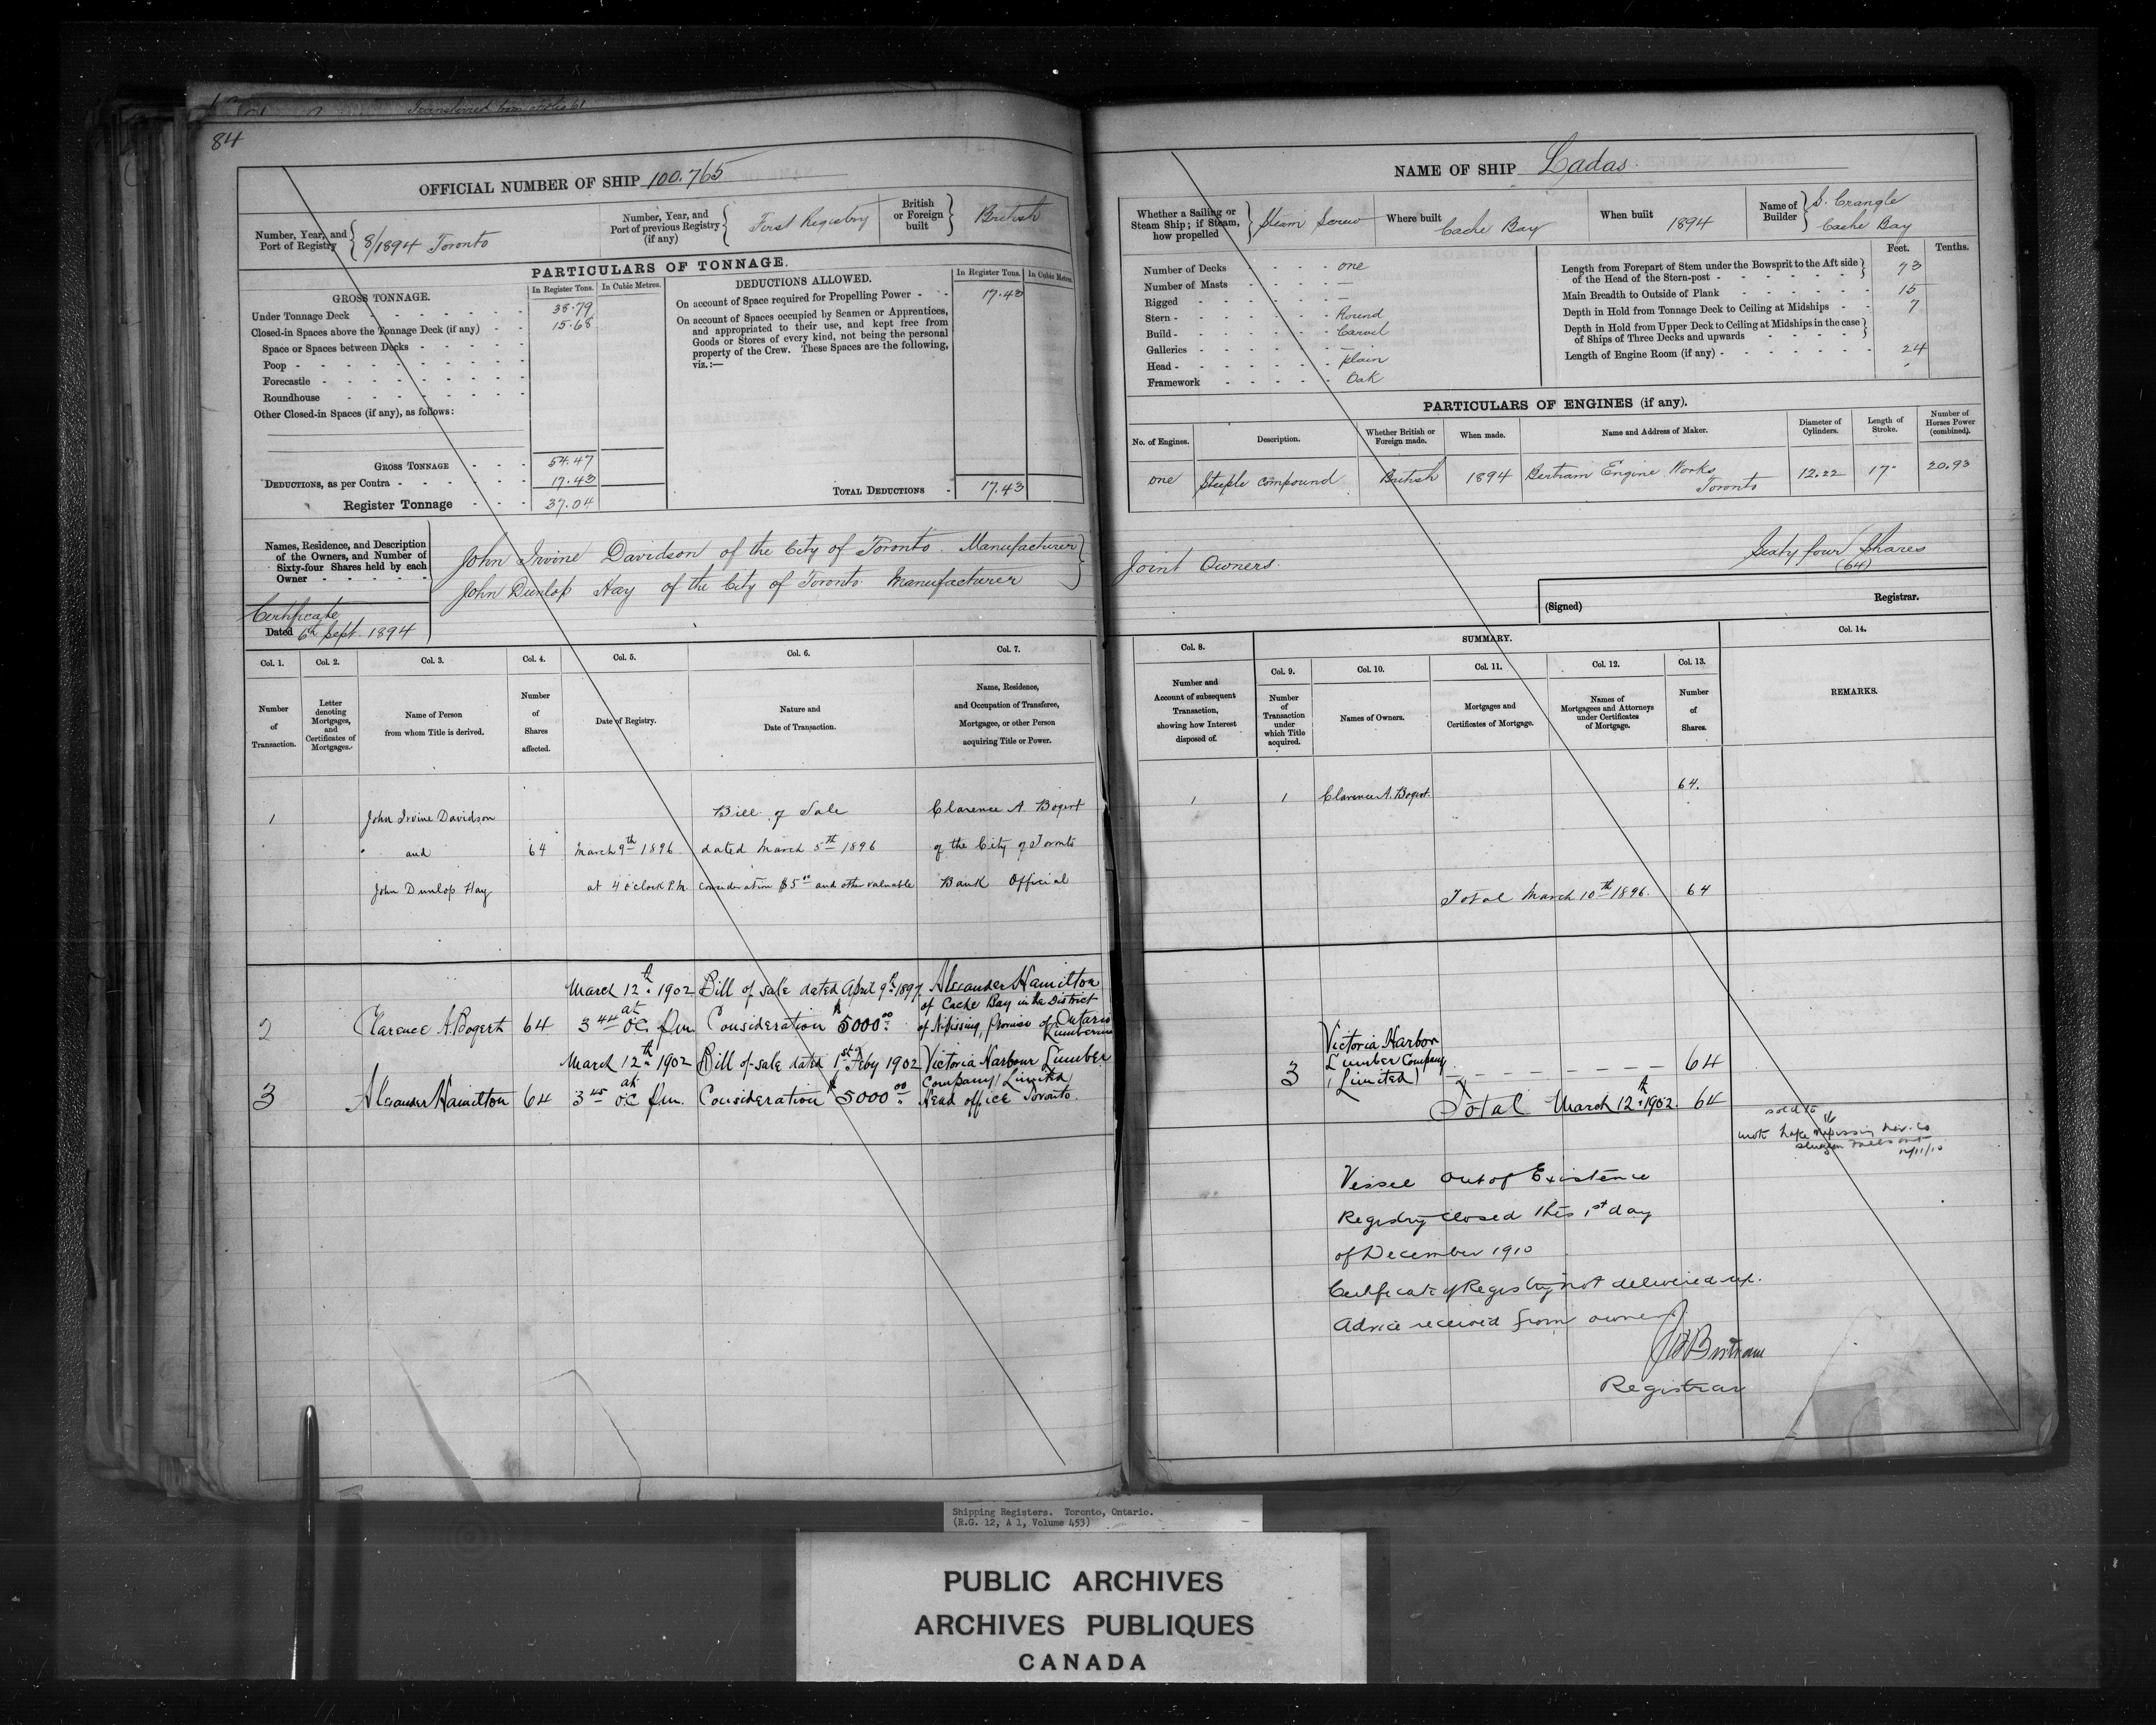 Transferred from
84
OFFICIAL NUMBER OF SHIP 100.765
Number, Year, and Port of Registry 8/1894 Toronto
Number, Year, and Port of previous Registry (if any) First Registry
British or Foreign built British
PARTICULARS OF TONNAGE.
GROSS TONNAGE. In Register Tons. In Cubic Metres.
Under Tonnage Deck 38.79
Closed-in Spaces above the Tonnage Deck (if any) 15.68
Space or Spaces between Decks
Poop
Forecastle
Roundhouse
Other Closed-in Spaces (if any), as follows:
GROSS TONNAGE 54.47
DEDUCTIONS, as per Contra 17.43
Register Tonnage 37.04
DEDUCTIONS ALLOWED. In Register Tons. In Cubic Metres.
On account of Space required for Propelling Power 17.43
On account of Spaces occupied by Seamen or Apprentices,
and appropriated to their use, and kept free from
Goods or Stores of every kind, not being the personal
property of the Crew. These Spaces are the following,
viz.:—
TOTAL DEDUCTIONS 17.43
Names, Residence, and Description
of the Owners, and Number of
Sixty-four Shares held by each
Owner
John Irvine Davidson of the City of Toronto. Manufacturer
John Dunlop Hay of the City of Toronto Manufacturer
Certificate
Dated 6th Sept. 1894
Col. 1. Col. 2. Col. 3. Col. 4. Col. 5. Col. 6. Col. 7.
Number of Transaction.
Letter denoting Mortgages, and Certificates of Mortgages.
Name of Person from whom Title is derived.
Number of Shares affected.
Date of Registry.
Nature and Date of Transaction.
Name, Residence, and Occupation of Transferee, Mortgagee, or other Person acquiring Title or Power.
1 John Irvine Davidson Bill of Sale Clarence A. Bogert
and 64 March 9th 1896 dated March 5th 1896 of the City of Toronto
John Dunlop Hay at 4 o'clock P.M. consideration $5.00 and other valuable Bank Official
March 12th 1902 Bill of sale dated April 9th 1897 Alexander Hamilton
of Cache Bay in the District
2 Clarence A. Bogert 64 3 44 at o'c. p.m. Consideration $5000.00 of Nipissing, Province of Ontario
Lumberman
March 12th 1902 Bill of sale dated 1st Feby 1902 Victoria Harbour Lumber
Company Limited
3 Alexander Hamilton 64 3 45 at o'c p.m. Consideration $5000.00 Head office Toronto.
NAME OF SHIP Ladas.
Whether a Sailing or Steam Ship; if Steam, how propelled Steam Screw
Where built Cache Bay
When built 1894
Name of Builder S. Crangle
Cache Bay
Number of Decks one
Number of Masts —
Rigged —
Stern Round
Build Carvel
Galleries —
Head plain
Framework Oak
Feet. Tenths.
Length from Forepart of Stem under the Bowsprit to the Aft side
of the Head of the Stern-post 73
Main Breadth to Outside of Plank 15
Depth in Hold from Tonnage Deck to Ceiling at Midships 7
Depth in Hold from Upper Deck to Ceiling at Midships in the case
of Ships of Three Decks and upwards
Length of Engine Room (if any) 24
PARTICULARS OF ENGINES (if any).
No. of Engines. Description. Whether British or Foreign made. When made. Name and Address of Maker. Diameter of Cylinders. Length of Stroke. Number of Horses Power (combined).
one Steeple compound British 1894 Bertram Engine Works Toronto 12.22 17" 20.93
Joint Owners. Sixty four Shares
(64)
(Signed) Registrar.
Col. 8. SUMMARY. Col. 14.
Col. 9. Col. 10. Col. 11. Col. 12. Col. 13.
Number and Account of subsequent Transaction, showing how Interest disposed of.
Number of Transaction under which Title acquired.
Names of Owners.
Mortgages and Certificates of Mortgage.
Names of Mortgagees and Attorneys under Certificates of Mortgage.
Number of Shares.
REMARKS.
1 1 Clarence A. Bogert. 64.
Total March 10th 1896. 64
Victoria Harbor
Lumber Company
3 (Limited) 64
Total March 12th 1902. 64
sold to
Lake Nipissing Nav. Co
Sturgeon Falls Ont
Vessel out of Existence
Registry closed this 1st day
of December 1910
Certificate of Registry not delivered up.
Advice received from owner
Bertram
Registrar
Shipping Registers. Toronto, Ontario.
(R.G. 12, A 1, Volume 453)
PUBLIC ARCHIVES
ARCHIVES PUBLIQUES
CANADA